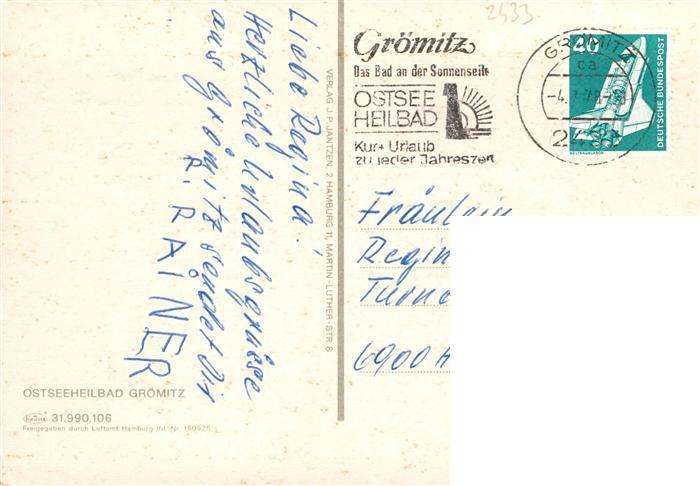 2533
Liebe Regina!
Herzliche Urlaubsgrüsse
aus Grömitz sendet Dir
R. RAINER
OSTSEEHEILBAD GRÖMITZ
31.990.106
Freigegeben durch Luftamt Hamburg
VERLAG J. P. JANTZEN, 2 HAMBURG 11, MARTIN-LUTHER-STR. 8
Grömitz
Das Bad an der Sonnenseite
OSTSEE
HEILBAD
Kur + Urlaub
zu jeder Jahreszeit
GRÖMITZ
ca
40
DEUTSCHE BUNDESPOST
WELTRAUMLABOR
Fräulein
Regin
Turne
6900 H